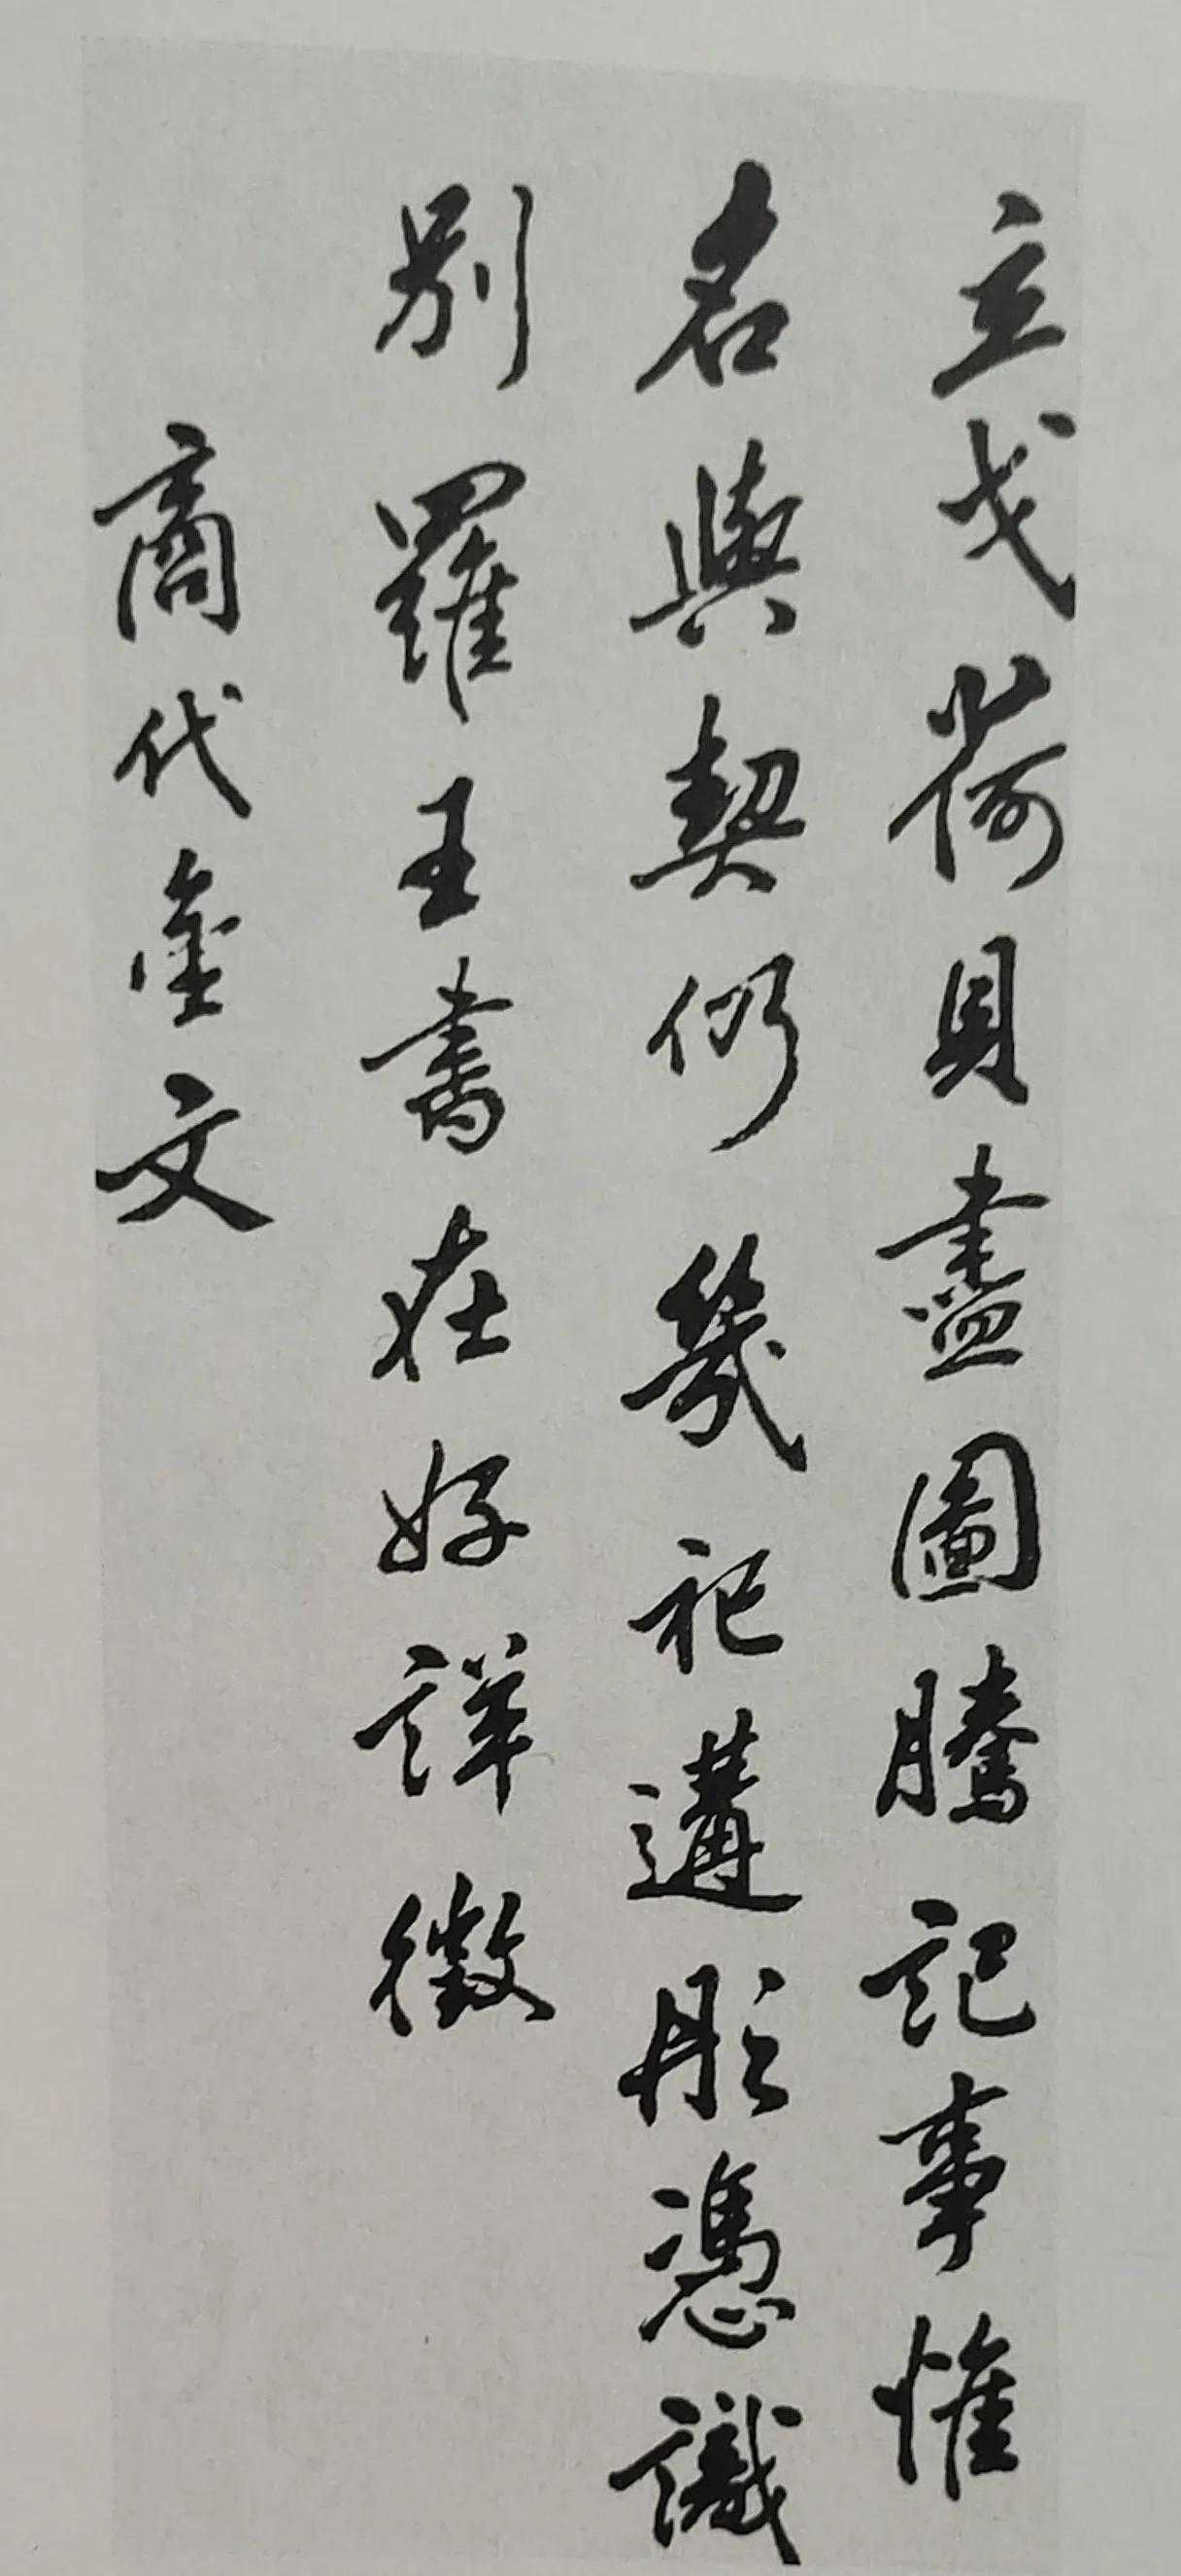 立戈荷貝盡圖騰記事惟
名與契仍幾祀遘肜憑識
別羅王書在好詳徵
商代金文